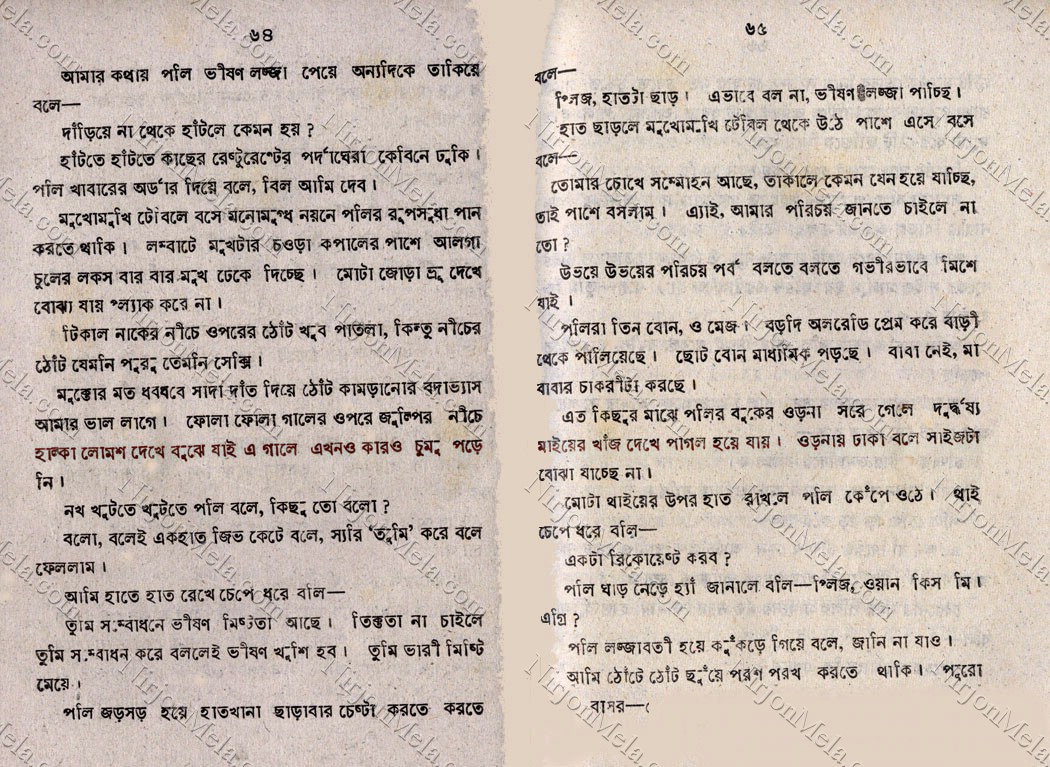 ৬৪
আমার কথায় পলি ভীষণ লজ্জা পেয়ে অন্যদিকে তাকিয়ে
বলে—
দাঁড়িয়ে না থেকে হাঁটলে কেমন হয় ?
হাঁটতে হাঁটতে কাছের রেষ্টুরেন্টের পর্দাঘেরা কেবিনে ঢুকি ।
পলি খাবারের অর্ডার দিয়ে বলে, বিল আমি দেব ।
মুখোমুখি টেবিলে বসে মনোমুগ্ধ নয়নে পলির রূপসুধা পান
করতে থাকি । লম্বাটে মুখটার চওড়া কপালের পাশে আলগা
চুলের লকস বার বার মুখ ঢেকে দিচ্ছে । মোটা জোড়া ভ্রু দেখে
বোঝা যায় প্ল্যাক করে না ।
টিকাল নাকের নীচে ওপরের ঠোঁট খুব পাতলা, কিন্তু নীচের
ঠোঁট যেমনি পুরু তেমনি সেক্সি ।
মুক্তোর মত ধবধবে সাদা দাঁত দিয়ে ঠোঁট কামড়ানোর বদাভ্যাস
আমার ভাল লাগে । ফোলা ফোলা গালের ওপরে জুলপির নীচে
হাল্কা লোমশ দেখে বুঝে যাই এ গালে এখনও কারও চুমু পড়ে
নি ।
নখ খুটতে খুটতে পলি বলে, কিছু তো বলো ?
বলো, বলেই একহাত জিভ কেটে বলে, স্যরি 'তুমি' করে বলে
ফেললাম ।
আমি হাতে হাত রেখে চেপে ধরে বলি—
তুমি সম্বোধনে ভীষণ মিষ্টতা আছে । তিক্ততা না চাইলে
তুমি সম্বোধন করে বললেই ভীষণ খুশি হব । তুমি ভারী মিষ্টি
মেয়ে ।
পলি জড়সড় হয়ে হাতখানা ছাড়াবার চেষ্টা করতে করতে
৬৫
বলে—
প্লিজ, হাতটা ছাড় । এভাবে বল না, ভীষণ লজ্জা পাচ্ছি ।
হাত ছাড়লে মুখোমুখি টেবিল থেকে উঠে পাশে এসে বসে
বলে—
তোমার চোখে সম্মোহন আছে, তাকালে কেমন যেন হয়ে যাচ্ছি,
তাই পাশে বসলাম । এ্যাই, আমার পরিচয় জানতে চাইলে না
তো ?
উভয়ে উভয়ের পরিচয় পর্ব বলতে বলতে গভীরভাবে মিশে
যাই ।
পলিরা তিন বোন, ও মেজ । বড়দি অলরেডি প্রেম করে বাড়ী
থেকে পালিয়েছে । ছোট বোন মাধ্যমিক পড়ছে । বাবা নেই, মা
বাবার চাকরীটা করছে ।
এত কিছুর মাঝে পলির বুকের ওড়না সরে গেলে দুর্দ্ধষ্য
মাইয়ের খাঁজ দেখে পাগল হয়ে যায় । ওড়নায় ঢাকা বলে সাইজটা
বোঝা যাচ্ছে না ।
মোটা থাইয়ের উপর হাত রাখলে পলি কেঁপে ওঠে । থাই
চেপে ধরে বলি—
একটা রিকোয়েষ্ট করব ?
পলি ঘাড় নেড়ে হ্যাঁ জানালে বলি—প্লিজ, ওয়ান কিস মি ।
এগ্রি ?
পলি লজ্জাবতী হয়ে কুঁকড়ে গিয়ে বলে, জানি না যাও ।
আমি ঠোঁটে ঠোঁট ছুঁয়ে পরশ পরখ করতে থাকি । পুরো
বাসর—
NirjonMela.com